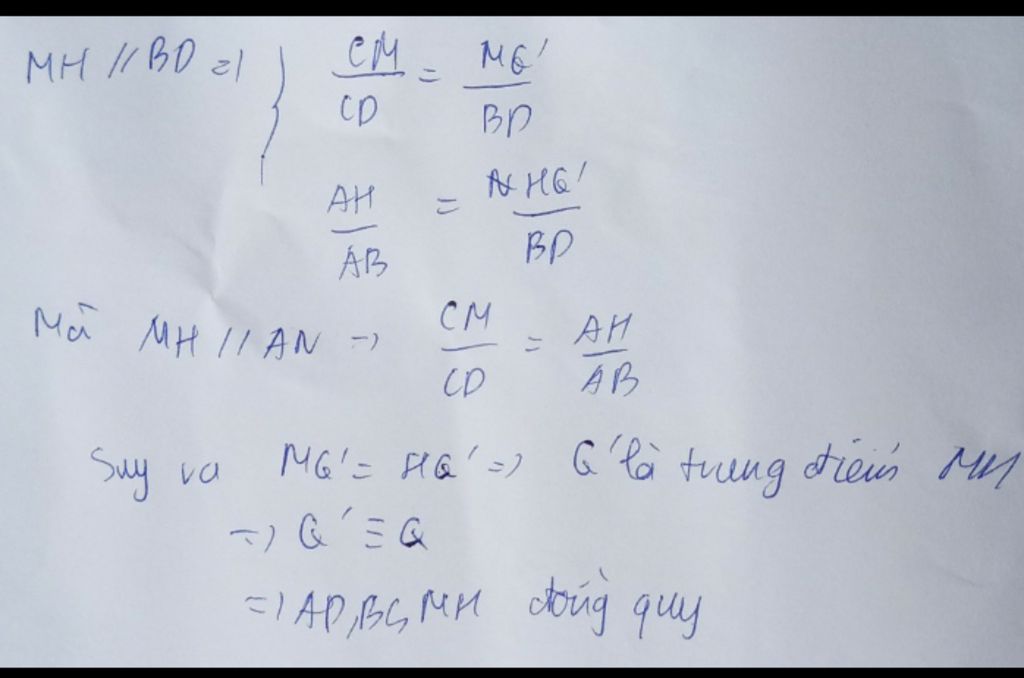 MH // BD => } CM/CD = MG'/BD
AH/AB = HG'/BD
Mà MH // AN => CM/CD = AH/AB
Suy ra MG' = HG' => G' là trung điểm MH
=> G' ≡ G
=> AD, BC, MH đồng quy